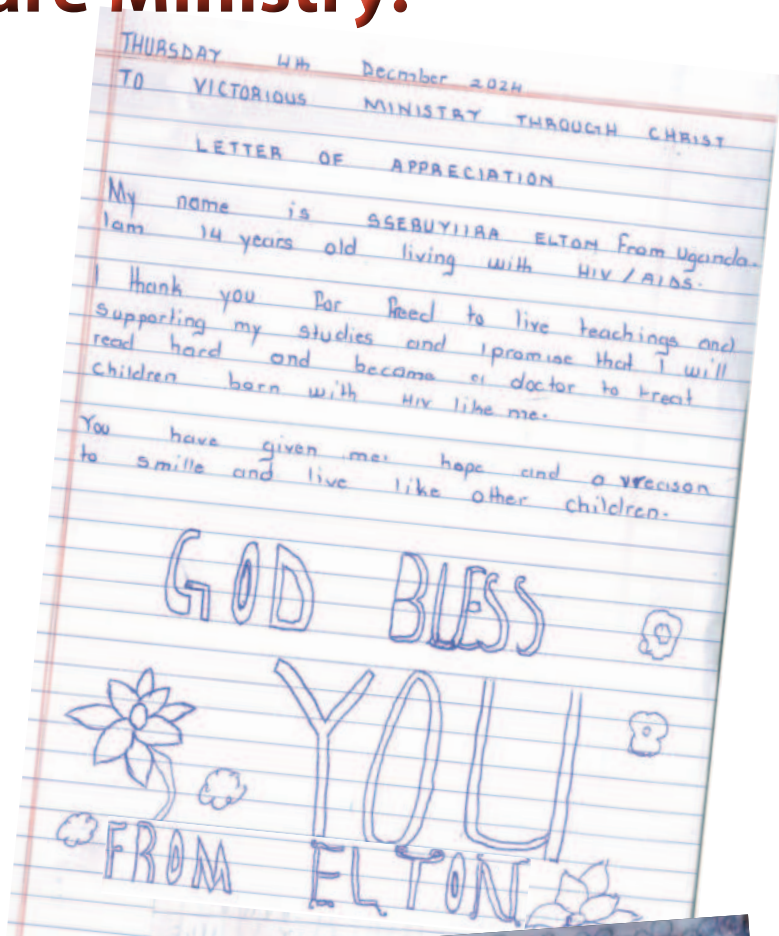 are Ministry.
THURSDAY 4th Decmber 2024
TO VICTORIOUS MINISTRY THROUGH CHRIST
LETTER OF APPRECIATION
My name is SSEBUYIIRA ELTON From Uganda.
Iam 14 years old living with HIV/AIDS.
I thank you for freed to live teachings and
Supporting my studies and Ipromise that I will
read hard and become a doctor to treat
Children born with HIV like me.
You have given me: hope and a reason
to smille and live like other children.
GOD BLESS
YOU
FROM ELTON